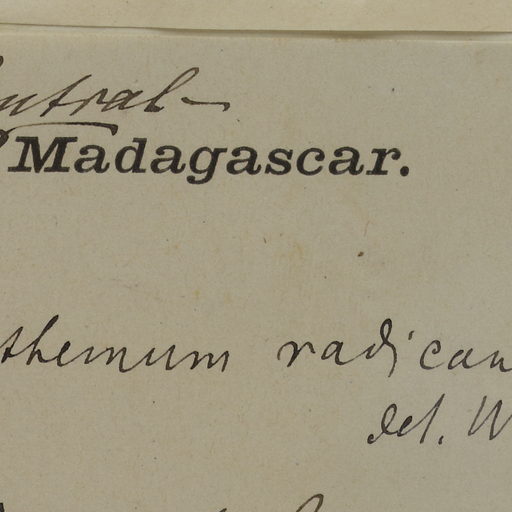 ntral
Madagascar.
themum radican
det. W